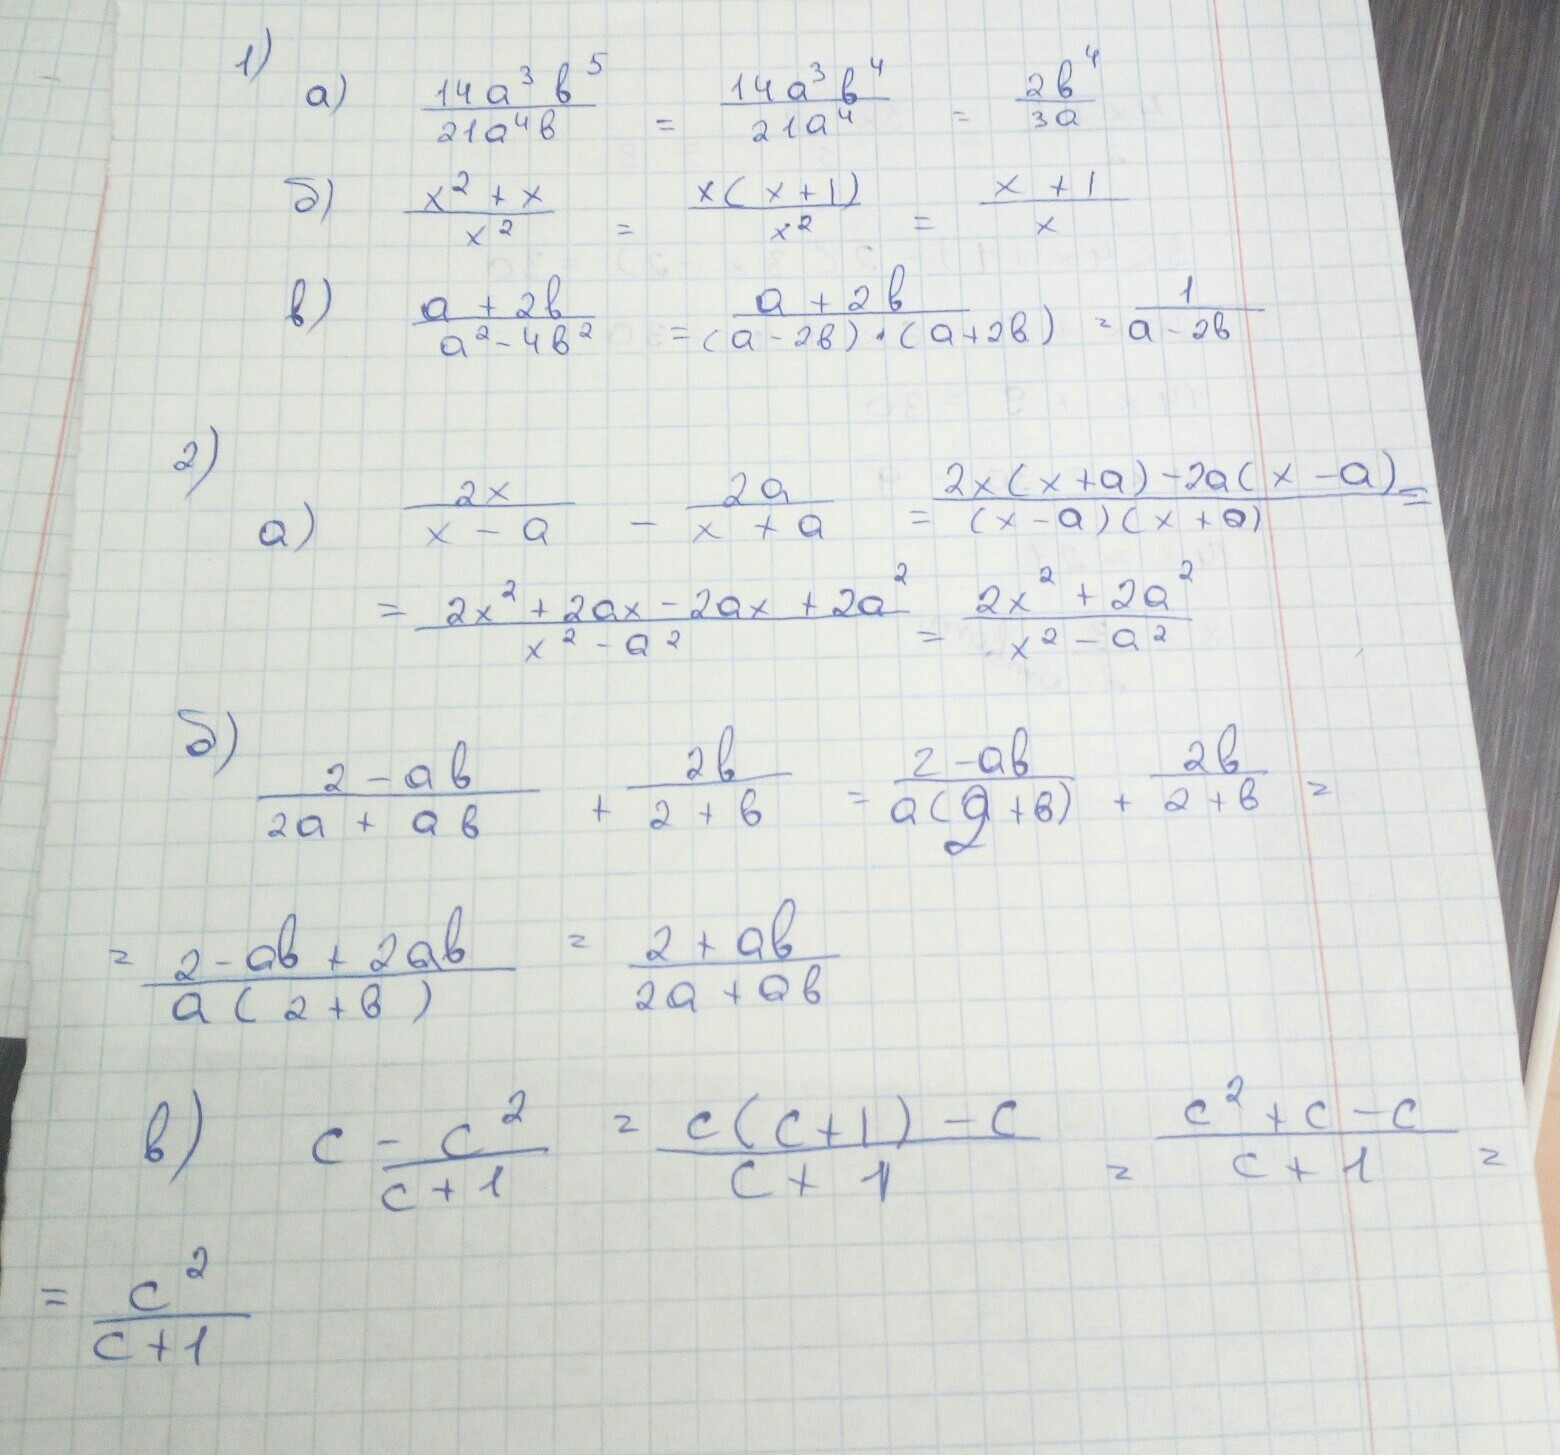 1)
а) 14a³b⁵/21a⁴b = 14a³b⁴/21a⁴ = 2b⁴/3a
б) x² + x/x² = x(x+1)/x² = x + 1/x
в) a + 2b/a² - 4b² = a + 2b/(a - 2b)·(a + 2b) = 1/a - 2b
2)
а) 2x/x - a - 2a/x + a = 2x(x+a) - 2a(x - a)/(x - a)(x + a) =
= 2x² + 2ax - 2ax + 2a²/x² - a² = 2x² + 2a²/x² - a²
б) 2 - ab/2a + ab + 2b/2 + b = 2 - ab/a(2 + b) + 2b/2 + b =
= 2 - ab + 2ab/a(2 + b) = 2 + ab/2a + ab
в) c - c²/c + 1 = c(c+1) - c/c + 1 = c² + c - c/c + 1 =
= c²/c + 1